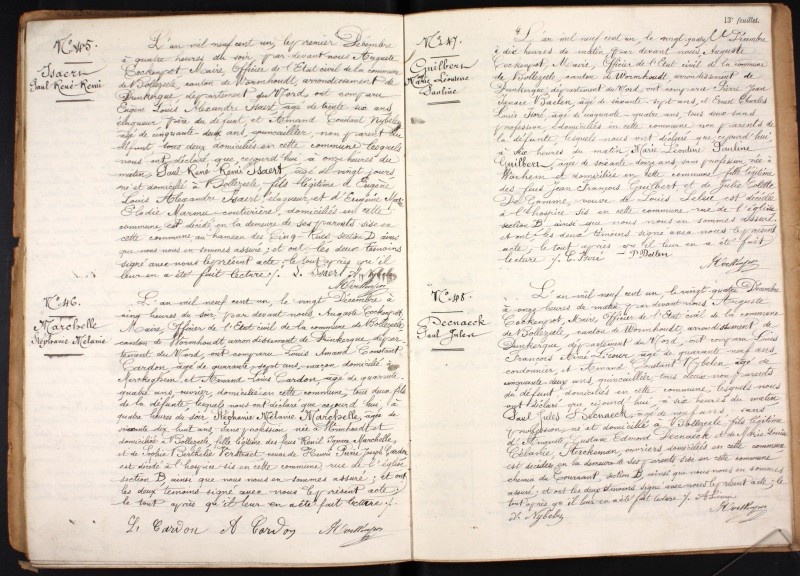 N° 45.
Isaert
Paul René Remi
L'an mil neuf cent un, le premier Décembre
à quatre heures du soir par devant nous Auguste
Cockenpot Maire, Officier de l'Etat civil de la commune
de Bollezeele, canton de Wormhoudt, arrondissement de
Dunkerque département du Nord, ont comparu
Eugène Louis Alexandre Isaert, âgé de trente six ans
élagueur, père du défunt, et Amand Constant Nybelen
âgé de cinquante deux ans, quincailler, non parent du
défunt tous deux domiciliés en cette commune, lesquels
nous ont déclaré que cejourd'hui à onze heures du
matin, Paul René Remi Isaert, âgé de vingt jours,
né et domicilié à Bollezeele, fils légitime d'Eugène
Louis Alexandre Isaert, élagueur, et d'Eugénie
Elodie couturière, domiciliés en cette
commune, est décédé en la demeure de ses parents sise en
cette commune au hameau des Cinq-Rues section D ainsi
que nous nous en sommes assuré; et ont les deux témoins
signé avec nous le présent acte, le tout après qu'il
leur en a été fait lecture ./.
N° 46.
Marchelle
Stéphanie Mélanie
L'an mil neuf cent un, le vingt Décembre à
cinq heures du soir, par devant nous, Auguste Cockenpot
Maire, Officier de l'Etat civil de la commune de Bollezeele,
canton de Wormhoudt, arrondissement de Dunkerque, dépar-
tement du Nord, ont comparu Louis Amand Constant
Cardon, âgé de quarante sept ans, maçon domicilié à
Merckeghem et Amand Louis Cardon, âgé de quarante
quatre ans, ouvrier domicilié en cette commune, tous deux fils
de la défunte, lesquels nous ont déclaré que cejourd'hui, à
quatre heures du soir Stéphanie Mélanie Marchelle, âgée de
soixante dix huit ans, sans profession née à Wormhoudt et
domiciliée à Bollezeele, fille légitime des feus Ignace Marchelle,
et de Sophie Berthilie Verstraet, veuve de Pierre Joseph Cardon
est décédée à l'hospice sis en cette commune rue de l'église
section B, ainsi que nous nous en sommes assuré; et ont
les deux témoins signé avec nous le présent acte;
le tout après qu'il leur en a été fait lecture ./.
L. Cardon A Cardon
13e feuillet.
N° 47.
Guilbert
Marie Léontine
Pauline
L'an mil neuf cent un le vingt quatre Décembre
à dix heures du matin, par devant nous, Auguste
Cockenpot, Maire, Officier de l'Etat civil de la commune
de Bollezeele, canton de Wormhoudt, arrondissement de
Dunkerque département du Nord, ont comparu Pierre Jean
Ignace Baelen, âgé de soixante sept ans, et Ernest Charles
Louis âgé de cinquante quatre ans, tous deux sans
profession, domiciliés en cette commune, non parents de
la défunte, lesquels nous ont déclaré que cejourd'hui
à six heures du matin, Marie Léontine Pauline
Guilbert, âgée de soixante douze ans sans profession, née à
Warhem et domiciliée en cette commune, fille légitime
des feus Jean François Guilbert et de Julie Colette
veuve de Louis est décédée
à l'hospice sis en cette commune rue de l'église
section B, ainsi que nous nous en sommes assuré;
et ont les deux témoins signé avec nous le présent
acte; le tout après qu'il leur en a été fait
lecture ./. P Baelen
N° 48.
Decnaeck
Paul Jules
L'an mil neuf cent un, le vingt-quatre Décembre
à onze heures du matin, par devant nous Auguste
Cockenpot, Maire, Officier de l'Etat civil de la commune
de Bollezeele, canton de Wormhoudt, arrondissement de
Dunkerque, département du Nord, ont comparu Louis
François Aimé âgé de quarante neuf ans,
cordonnier et Amand Constant Nybelen âgé de
cinquante deux ans, quincailler, tous deux non parents
du défunt, domiciliés en cette commune, lesquels nous
ont déclaré que cejourd'hui, à six heures du matin
Paul Jules Decnaeck, âgé de neuf ans, sans
profession, né et domicilié à Bollezeele, fils légitime
d'Auguste Gustave Edmond Decnaeck et de Marie Louise
ouvriers domiciliés en cette commune
est décédé en la demeure de ses parents sise en cette commune
chemin du Couvent section B, ainsi que nous nous en sommes
assuré; et ont les deux témoins signé avec nous le présent acte; le
tout après qu'il leur en a été fait lecture ./.